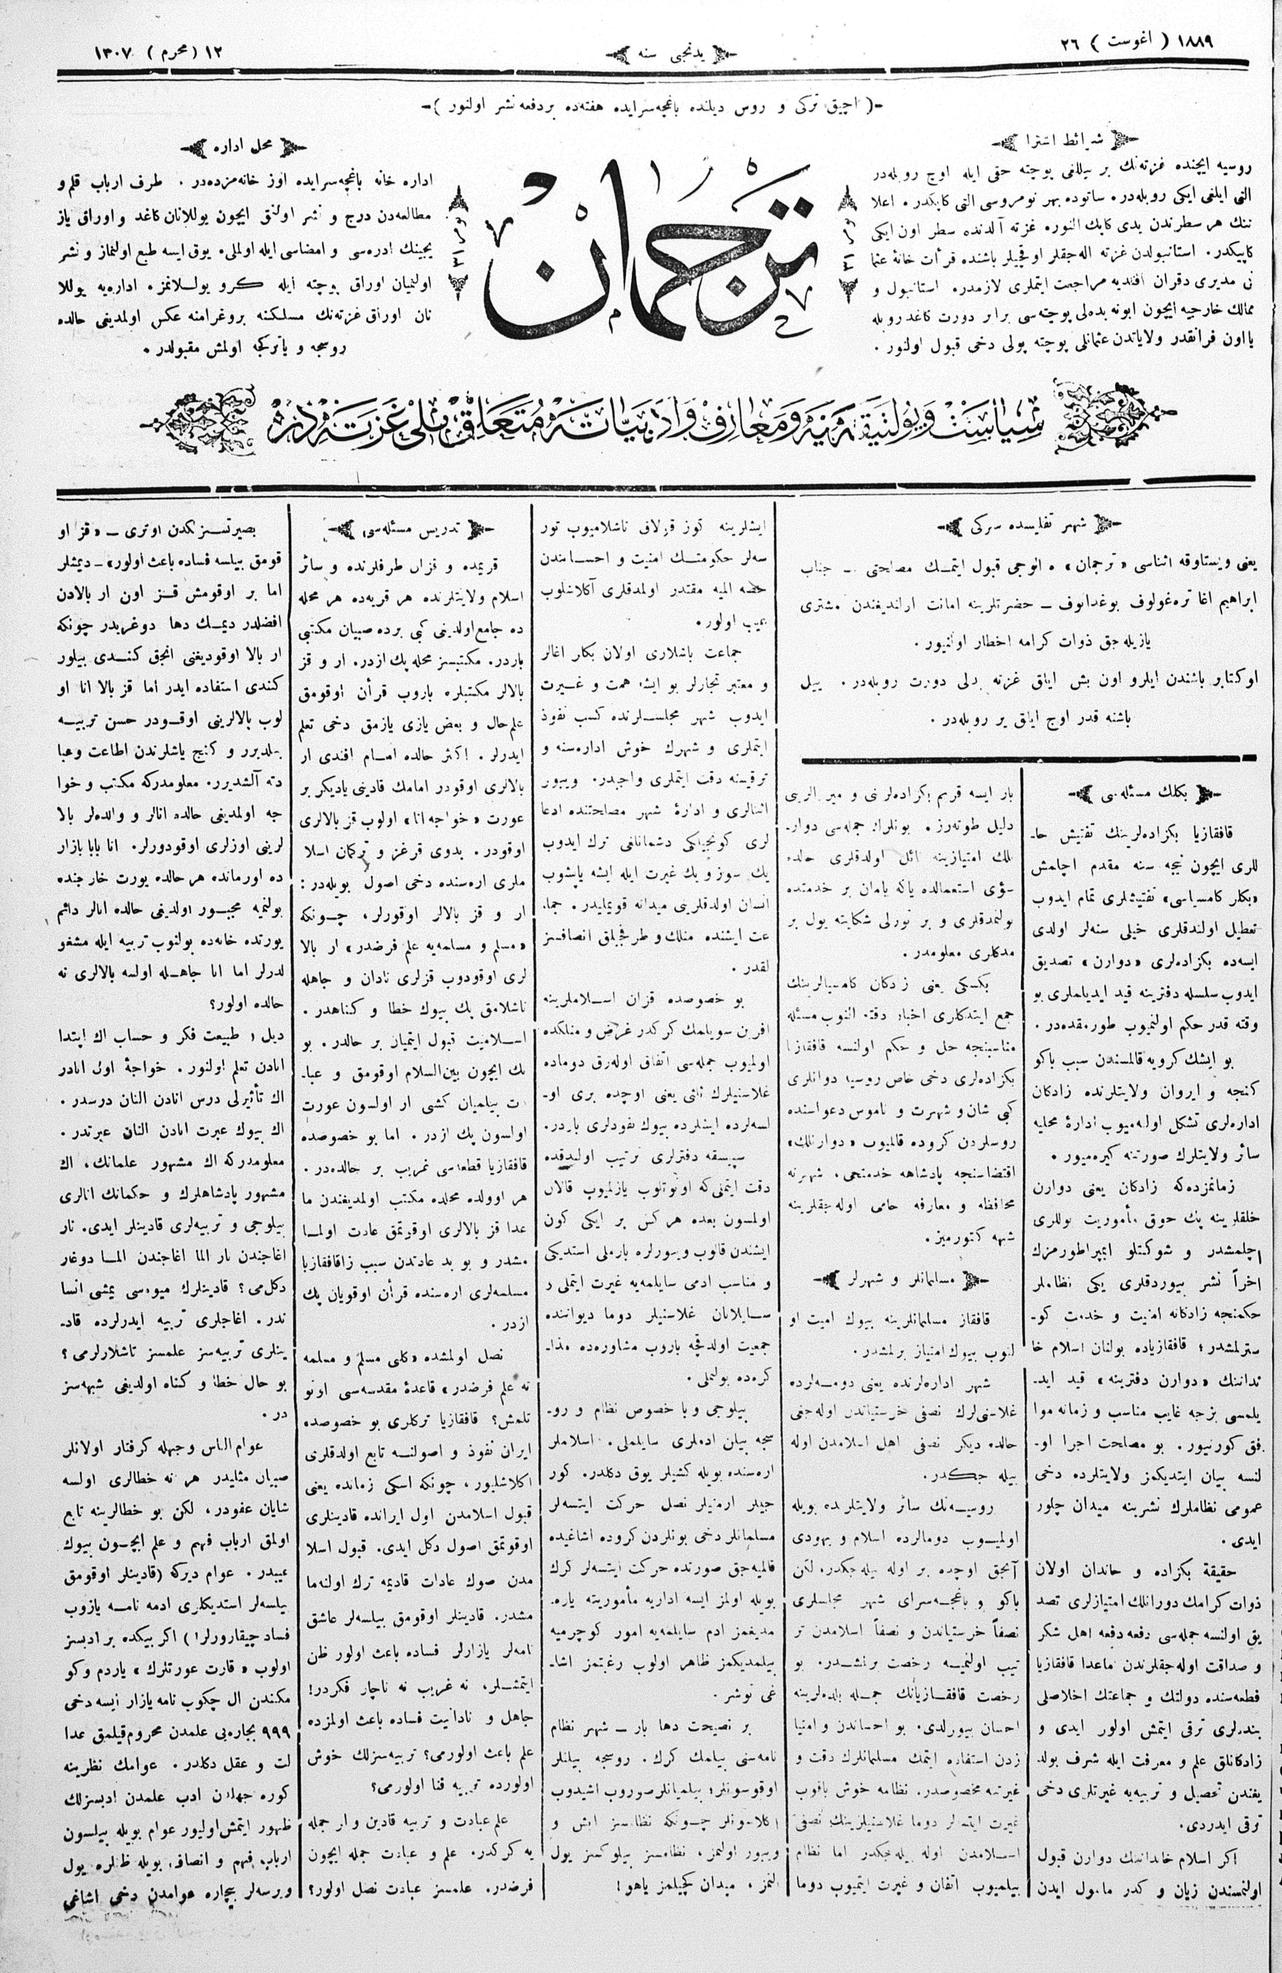 ١٨٨٩ ( اغوست ) ٢٦
يدنجی سنه
١٢ ( محرم ) ١٣٠٧
-( آچيق تركی و روس ديلنده باغچه‌سرايده هفته‌ده بردفعه نشر اولنور )-
شرائط اشترا
روسيه ايچنده غزته‌نك بر ييللغی پوچته حقی ايله اوچ روبله‌در
التی ايلغی ايكی روبله‌در. ساتوده بهر نومروسی التی كاپكدر. اعلا
ننك هر سطرندن يدی كاپك النور. غزته آلدنده سطر اون ايكی
كاپيكدر. استانبولدن غزته اله‌جقلر اوقچيلر باشنده قرأت خانۀ عثما
نی مديری دقران افنديه مراجعت ايتملری لازمدر. استانبول و
ممالك خارجيه ايچون ابونه بدلی پوچته‌سی برابر دورت كاغد روبله
يا اون فرانقدر ولاياتدن عثمانلی پوچته پولی دخی قبول اولنور.
ترجمان
محل اداره
اداره خانه باغچه‌سرايده اوز خانه‌مزده‌در. طرف ارباب قلم و
مطالعه‌دن درج و نشر اولنق ايچون يوللانان كاغد و اوراق ياز
يجينك ادره‌سی و امضاسی ايله اولملی. يوق ايسه طبع اولنماز و نشر
اولنميان اوراق پوچته ايله كرو يوللانمز. اداره‌يه يوللا
نان اوراق غزته‌نك مسلكنه پروغرامنه عكس اولمديغی حالده
روسجه و ياتركجه اولمش مقبولدر.
سياست و پولتيقه‌يه و معارف و ادبياته متعلق ملی غزته‌در
شهر تفليسده سركی
يعنی ويستاوقه اثناسی «ترجمان»ه
ابراهيم اغا
يازيله‌جق ذوات كرامه اخطار اولنيور.
اوكتابر باشندن ايلرو اون بش اياق غزته بدلی دورت روبله‌در. ييل
باشنه قدر اوچ اياق بر روبله‌در.
بكلك مسئله‌سی
قافقازيا بكزاده‌لرينك تفتيش حا
للری ايچون نيچه سنه مقدم اچلمش
«بكلر كاميسياسی» تفتيشلری تمام ايدوب
تعطيل اولندقلری خيلی سنه‌لر اولدی
ايسه‌ده بكزاده‌لری «دوارن» تصديق
ايدوب سلسله دفترينه قيد ايديلملری بو
وقته قدر حكم اولنميوب طورمقده‌در.
بو ايشك كرويه قالمسندن سبب باكو
كنجه و ايروان ولايتلرنده زادكان
اداره‌لری تشكل اوله‌ميوب ادارۀ محليه
سائر ولايتلرك صورتنه كيره‌ميور.
زمانمزده‌كه زادكان يعنی دوارن
خلقلرينه پك چوق مأموريت يوللری
اچلمشدر و شوكتلو ايمپراطورمزك
اخراً نشر بيوردقلری يكی نظاملر
حكمنجه زادكانه امنيت و خدمت كو
سترلمشدر؛ قافقازياده بولنان اسلام خا
ندانينك «دوارن دفترينه» قيد ايد
يلمسی بزجه غايب مناسب و زمانه موا
فق كورنيور. بو مصلحت اجرا او
لنسه بيان ايتديكمز ولايتلرده دخی
عمومی نظاملرك نشرينه ميدان چلور
ايدی.
حقيقة بكزاده و خاندان اولان
ذوات كرامك دورانلك امتيازلری تصد
يق اولنسه جمله‌سی دفعه دفعه اهل شكر
و صداقت اوله‌جقلرندن ماعدا قافقازيا
قطعه‌سنده دولتك و جماعتك اخلاصلی
بنده‌لری ترقی ايتمش اولور ايدی و
زادكانلق علم و معرفت ايله شرف بولد
يغندن تحصيل و تربيه‌يه غيرتلری دخی
ترقی ايدردی.
اكر اسلام خاندانينك دوارن قبول
اولنمسندن زيان و كدر مامول ايدن
بار ايسه قريم بكزاده‌لرنی و ميرزالرينی
دليل طوته‌رز. بونلرك جمله‌سی دوار
نلك امتيازينه نائل اولدقلری حالده
سؤی استعمالده ياكه يامان بر خدمتده
بولنمدقلری و بر تورلی شكايته يول بر
مدكلری معلومدر.
بككی يعنی زادكان كاميسيالرينك
جمع ايتدكلری اخبار دقته النوب مسئله
مناسبنجه حل و حكم اولنسه قافقازيا
بكزاده‌لری دخی خاص روسيه دوانلری
كبی شان و شهرت و ناموس دعواسنده
روسلردن كروده قالميوب «دوارنلك»
اقتضاسنجه پادشاهه خدمتجی، شهرته
محافظه و معارفه حامی اوله‌جقلرينه
شبهه كتورميز.
مسلمانلر و شهرلر
قافقاز مسلمانلرينه بيوك اهميت او
لنوب بيوك امتياز برلمشدر.
شهر اداره‌لرنده يعنی دومه‌لرده
غلاسنی‌لرك نصفی خرستياندن اوله‌جغی
حالده ديكر نصفی اهل اسلامدن اوله
بيله جكدر.
روسيه‌نك سائر ولايتلرنده بويله
اولميوب دومالرده اسلام و يهودی
آنجق اوچده بر اوله بيله‌جكدر. لكن
باكو و باغچه‌سرای شهر مجلسلری
نصفاً خرستياندن و نصفاً اسلامدن تر
تيب اولنمسه رخصت برلمشدر. بو
رخصت قافقازيانك جمله بلده‌لرينه
احسان بيورلدی. بو احساندن و امتيا
زدن استفاده ايتمك مسلمانلرك دقت و
غيرته مخصوصدر. نظامه خوش باقوب
غيرت ايتسه‌لر دوما غلاسنيلرينك نصفی
اسلامدن اوله بيله‌جكدر اما نظام
بيلميوب اتفاق و غيرت ايتميوب دوما
ايشلرينه كوز قولاق تاشلاميوب تور
سه‌لر حكومتك امنيت و احسانندن
حصه المیه مقتدر اولمدقلری آكلاشلوب
عيب اولور.
جماعت باشلاری اولان بكلر اغالر
و معتبر تجارلر بو ايشه همت و غيرت
ايدوب شهر مجلسلرنده كسب نفوذ
ايتملری و شهرك خوش اداره‌سنه و
ترقيسنه دقت ايتملری واجبدر. ويبور
اثنالری و ادارۀ شهر مصالحتنده ادعا
لری كونجيلكی دشمانلغی ترك ايدوب
يك سوز و يك غيرت ايله ايشه ياپشوب
انسان اولدقلرينی ميدانه قويمليدر. جما
عت ايشنده منلك و طرفجيلق انصافسز
لقدر.
بو خصوصده قزان اسلاملرينه
افرين سويلمك كركدر غرض و منلكده
اولميوب جمله‌سی اتفاق اوله‌رق دوماده
غلاسنيلرك ثانی يعنی اوچده بری او
لسه‌لرده ايشلرده بيوك نفوذلری باردر.
سپيسقه دفترلری ترتيب اولندقده
دقت ايتملی‌كه اونوتلوب يازلميوب قالان
اولمسون بعده هر كس بر ايكی كون
ايشندن قالوب ويبورلره بارملی استديكی
و مناسب ادمی سايلمه‌يه غيرت ايتملی و
سايلانان غلاسنيلر دوما ديواننده
جمعيت اولدقجه باروب مشاوره‌ده مذا
كره‌ده بولنملی.
بيلوجی و با خصوص نظام و رو
سجه بيان ادملری سايلملی. اسلاملر
اره‌سنده بويله كشيلر يوق دكلدر. كور
جيلر ارمنيلر نصل حركت ايتسه‌لر
مسلمانلر دخی بونلردن كروده اشاغيده
قالميه‌جق صورتده حركت ايتسه‌لر كرك
بويله اولمز ايسه اداريه مأموريته يارا
مديغمز ادم سايلمه‌يه امور كوچرميه
بيلمديكمز ظاهر اولوب رغبتمز اشا
غی توشر.
بر نصيحت دها بار — شهر نظام
نامه‌سنی بيلمك كرك. روسجه بيلنلر
اوقوسونلر؛ بيلميانلر صوروب اشيدوب
اكلاسونلر چونكه نظامسز ايش و
ويبور اولنمز، نظامسز بيلوكسز يول
النمز. ميدان كچيلمز ياهو!
تدريس مسئله‌سی
قريمده و قزان طرفلرنده و سائر
اسلام ولايتلرنده هر قريه‌ده هر محله
ده جامع اولديغی كبی برده صبيان مكتبی
باردر. مكتبسز محله پك ازدر. ار و قز
بالالر مكتبلره باروب قرأن اوقومق
علم حال و بعض يازی يازمق دخی تعلم
ايدرلر. اكثر حالده امام افندی ار
بالالری اوقودر امامك قادينی ياديكر بر
عورت «خواجه انا» اولوب قز بالالری
اوقودر. بدوی قرغز و تركمان اسلا
ملری اره‌سنده دخی اصول بويله‌در:
ار و قز بالالر اوقورلر، چونكه
«مسلم و مسلمه‌يه علم فرضدر» ار بالا
لری اوقودوب قزلری نادان و جاهله
تاشلامق پك بيوك خطا و كناهدر.
اسلاميت قبول ايتميان بر حالدر. بو
نك ايچون بين‌السلام اوقومق و عبا
دت بيلميان كشی ار اولسون عورت
اولسون پك ازدر. اما بو خصوصده
قافقازيا قطعه‌سی غريب بر حالده‌در.
هر اوولده محلده مكتب اولمديغندن ما
عدا قز بالالری اوقوتمق عادت اولما
مشدر و بو بد عادتدن سبب زاقافقازيا
مسلمه‌لری اره‌سنده قرأن اوقويان پك
ازدر.
نصل اولمشده «كلی مسلم و مسلمه
نه علم فرضدر» قاعدۀ مقدسه‌سی اونو
تلمش؟ قافقازيا تركلری بو خصوصده
ايران نفوذ و اصولنه تابع اولدقلری
اكلاشليور، چونكه اسكی زمانده يعنی
قبول اسلامدن اول ايرانده قادينلری
اوقوتمق اصول دكل ايدی. قبول اسلا
مدن صوك عادات قديمه ترك اولنه‌ما
مشدر. قادينلر اوقومق بيلسه‌لر عاشق
نامه‌لر يازارلر فساده باعث اولور ظن
ايتمشلر، نه غريب نه ناچار فكردر!
جاهل و نادانيت فساده باعث اولمزده
علم باعث اولورمی؟ تربيه‌سزلك خوش
اولورده تربيه فنا اولورمی؟
علم عبادت و تربيه قادين و ار جمله
يه كركدر. علم و عبادت جمله ايچون
فرضدر. علمسز عبادت نصل اولور؟
بصيرتسزلكدن اوتری — «قز او
قومق بيلسه فساده باعث اولور» — ديمشلر
اما بر اوقومش قز اون ار بالادن
افضلدر ديمك دها دوغريدر چونكه
ار بالا اوقوديغنی انجق كندی بيلور
كندی استفاده ايدر اما قز بالا انا او
لوب بالالرينی اوقودر حسن تربيه
بيلديرر و كنج ياشلرندن اطاعت و عبا
دته آلشديرر. معلومدركه مكتب و خوا
جه اولمديغی حالده انالر و والده‌لر بالا
لرينی اوزلری اوقودورلر. انا بابا بازار
ده اورمانده هر حالده يورت خارجنده
بولنمه مجبور اولديغی حالده انالر دائم
يورتده خانه‌ده بولنوب تربيه ايله مشغو
لدرلر اما انا جاهله اولسه بالالری نه
حالده اولور؟
ديل، طبيعت فكر و حساب اك ابتدا
انادن تعلم اولنور. خواجۀ اول انادر
اك تأثيرلی درس انادن النان درسدر.
اك بيوك عبرت انادن النان عبرتدر.
معلومدركه اك مشهور علمانك، اك
مشهور پادشاهلرك و حكمانك انالری
بيلوجی و تربيه‌لری قادينلر ايدی. نار
اغاجندن نار الما اغاجندن الما دوغار
دكل‌می؟ قادينلرك ميوه‌سی يمشی انسا
ندر. اغاجلری تربيه ايدرلرده قاد
ينلری تربيه‌سز علمسز تاشلارلرمی؟
بو حال خطا و كناه اولديغی شبهه‌سز
در.
عوام الناس و جهله كرفتار اولانلر
صبيان مثليدر هر نه خطالری اولسه
شايان عفودر، لكن بو خطالرينه تابع
اولمق ارباب فهم و علم ايچون بيوك
عيبدر. عوام ديركه (قادينلر اوقومق
بيلسه‌لر استديكلری ادمه نامه يازوب
فساد چيقارورلر!) اكر بيكده بر ادبسز
اولوب «قارت عورتلرك» ياردم و كو
مكندن ال چكوب نامه يازار ايسه دخی
٩٩٩ بجاره‌يی علمدن محروم قيلمق عدا
لت و عقل دكلدر. عوامك نظرينه
كوره جهلدن ادب علمدن ادبسزلك
ظهور ايتمش اوليور عوام بويله بيلسون
ارباب فهم و انصاف بويله ظنلره يول
ويرسه‌لر بيچاره عوامدن دخی اشاغی